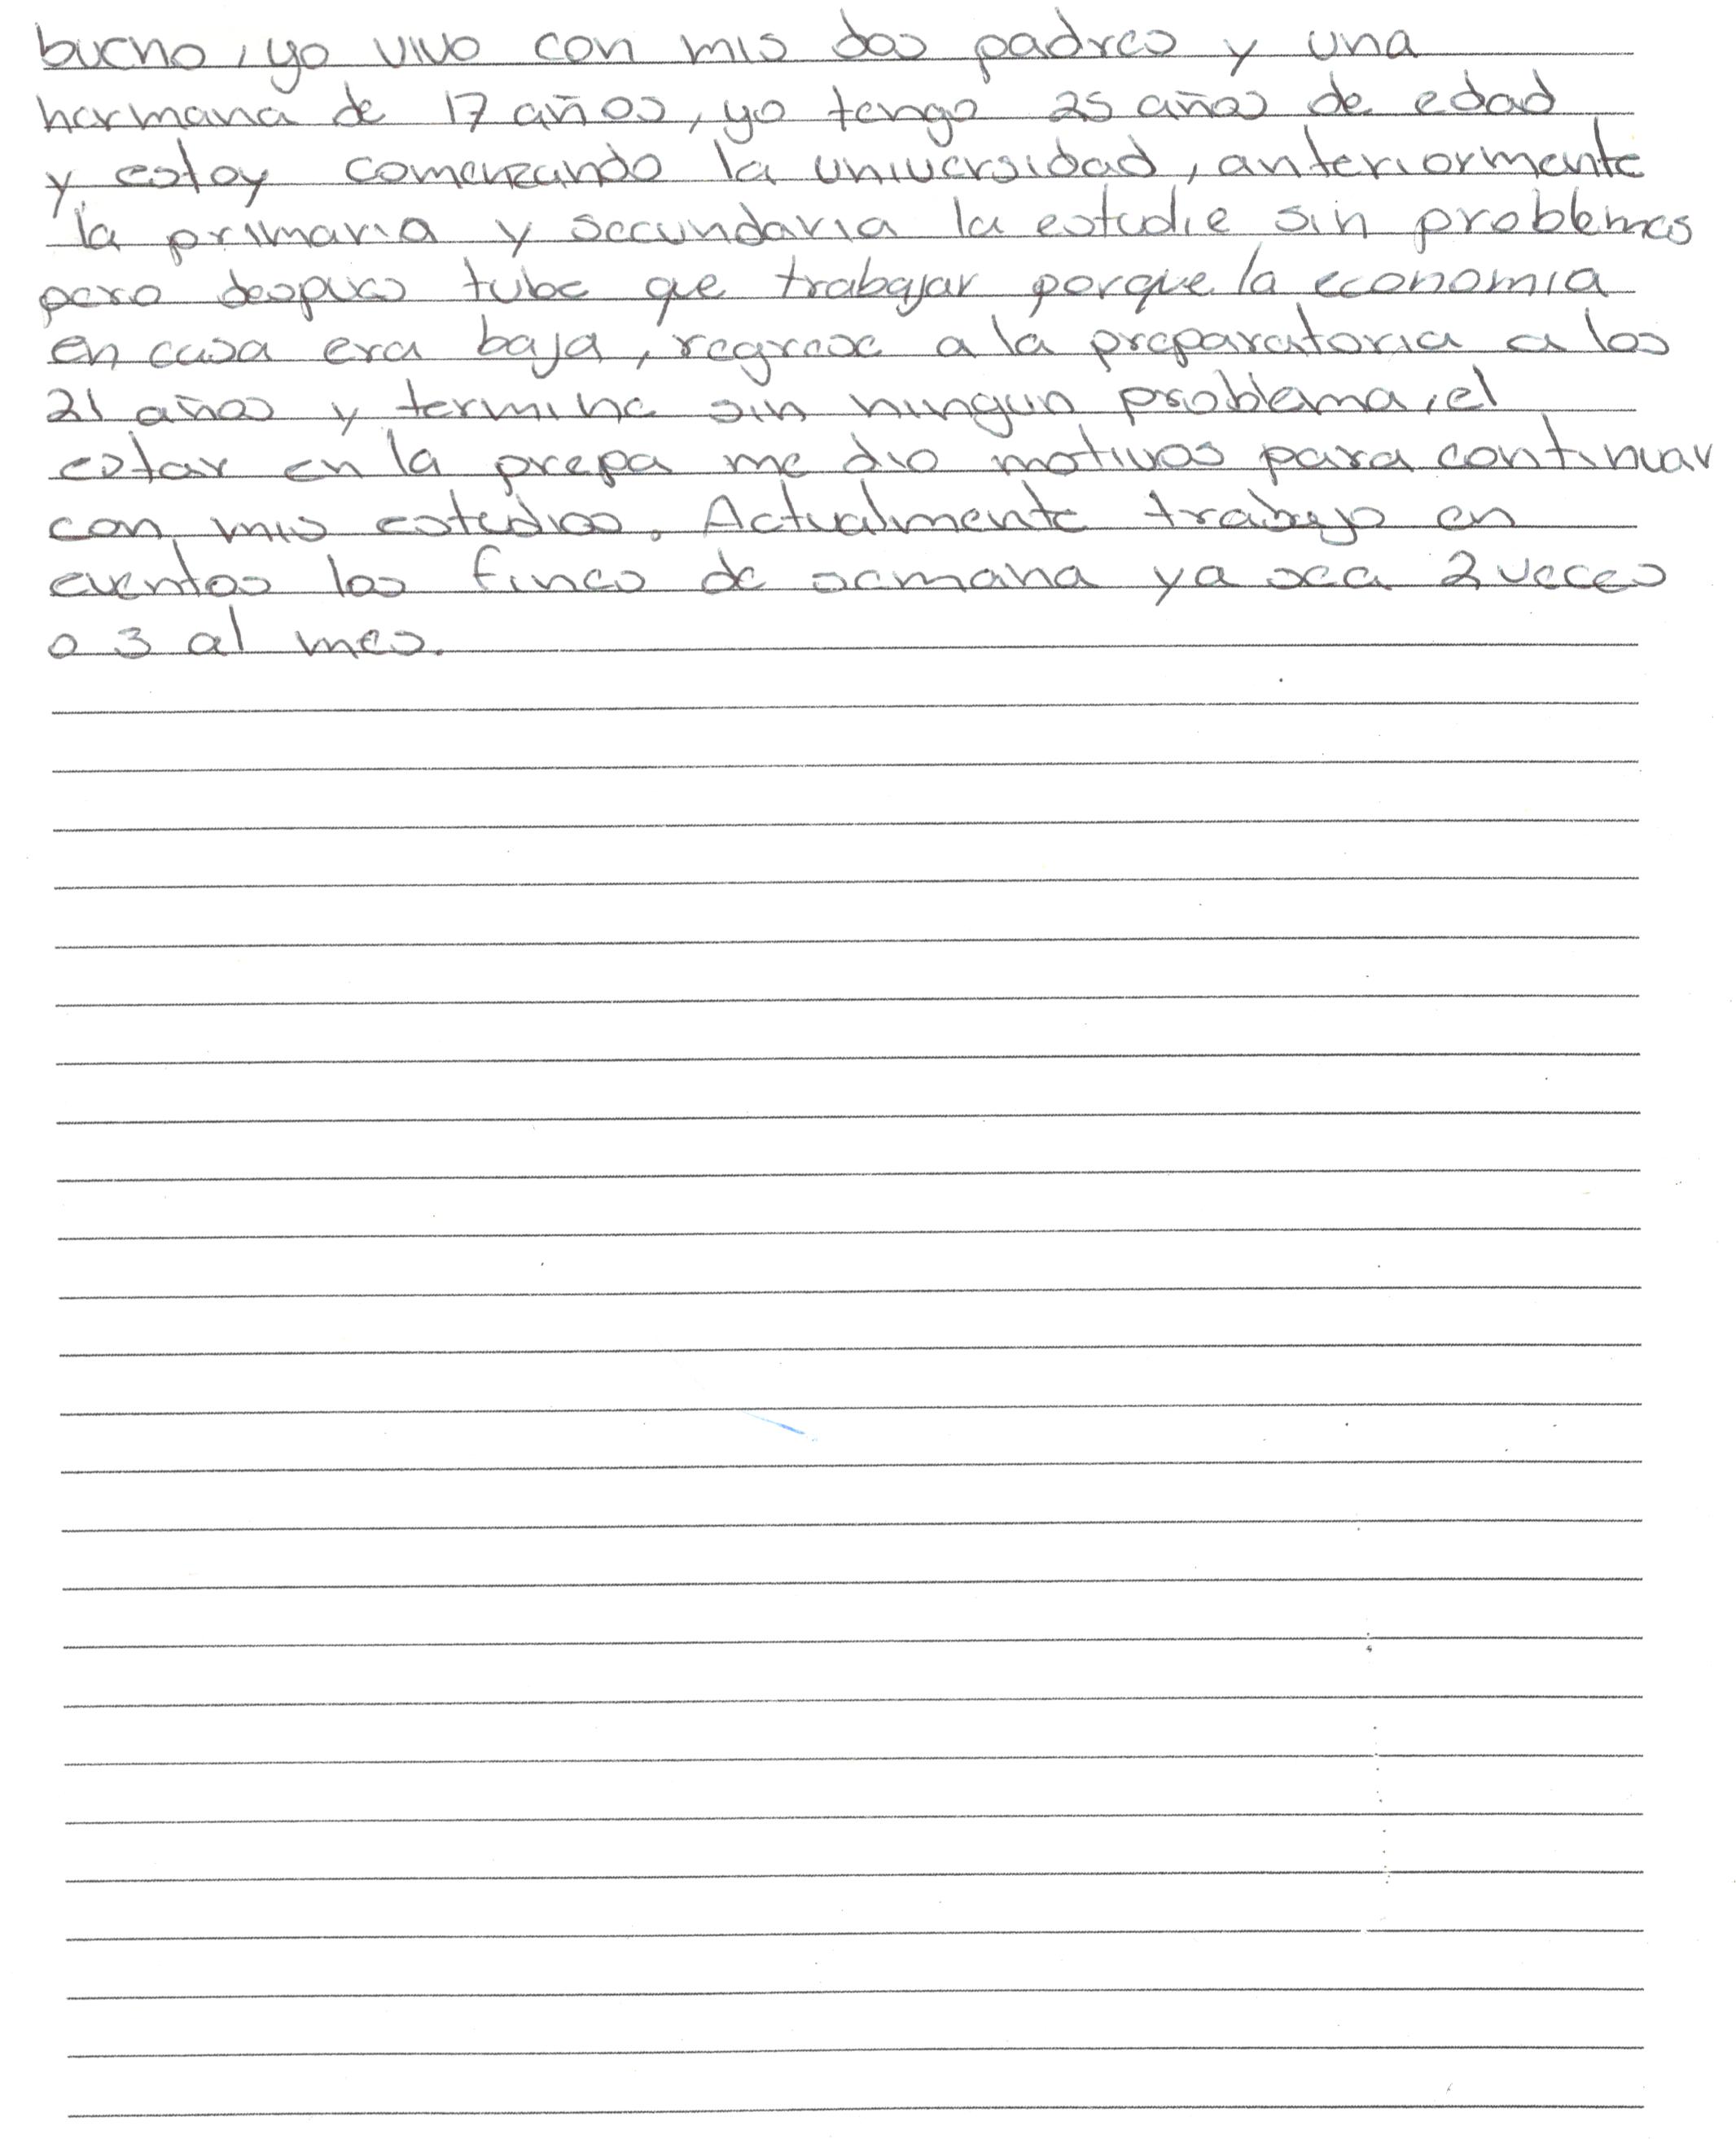 bueno, yo vivo con mis dos padres y una
hermana de 17 años, yo tengo 25 años de edad
y estoy comenzando la universidad, anteriormente
la primaria y secundaria la estudie sin problemas
pero despues tube que trabajar porque la economia
en casa era baja, regrese a la preparatoria a los
21 años y termine sin ningun problema, el
estar en la prepa me dio motivos para continuar
con mis estudios. Actualmente trabajo en
eventos los fines de semana ya sea 2 veces
o 3 al mes.